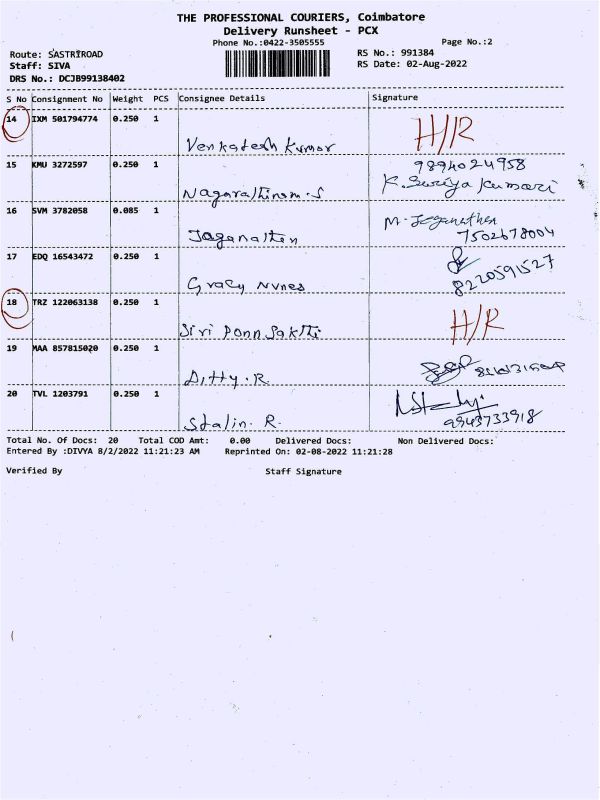 THE PROFESSIONAL COURIERS, Coimbatore
Delivery Runsheet - PCX
Phone No.:0422-3505555 Page No.:2
Route: SASTRIROAD RS No.: 991384
Staff: SIVA RS Date: 02-Aug-2022
DRS No.: DCJB99138402
S No Consignment No Weight PCS Consignee Details Signature
14 IXM 501794774 0.250 1 H/R
Venkatesh Kumar
15 KMU 3272597 0.250 1 9894024958
Nagarathinam.S K.Suriya Kumari
16 SVM 3782058 0.085 1 M. Jeganathan
Jaganathan 7502678004
17 EDQ 16543472 0.250 1
Gracy Nunes 8220591527
18 TRZ 122063138 0.250 1
Siri Ponn Sakthi H/R
19 MAA 857815020 0.250 1
Ditty.R
20 TVL 1203791 0.250 1
Stalin. R. 9943733918
Total No. Of Docs: 20 Total COD Amt: 0.00 Delivered Docs: Non Delivered Docs:
Entered By :DIVYA 8/2/2022 11:21:23 AM Reprinted On: 02-08-2022 11:21:28
Verified By Staff Signature